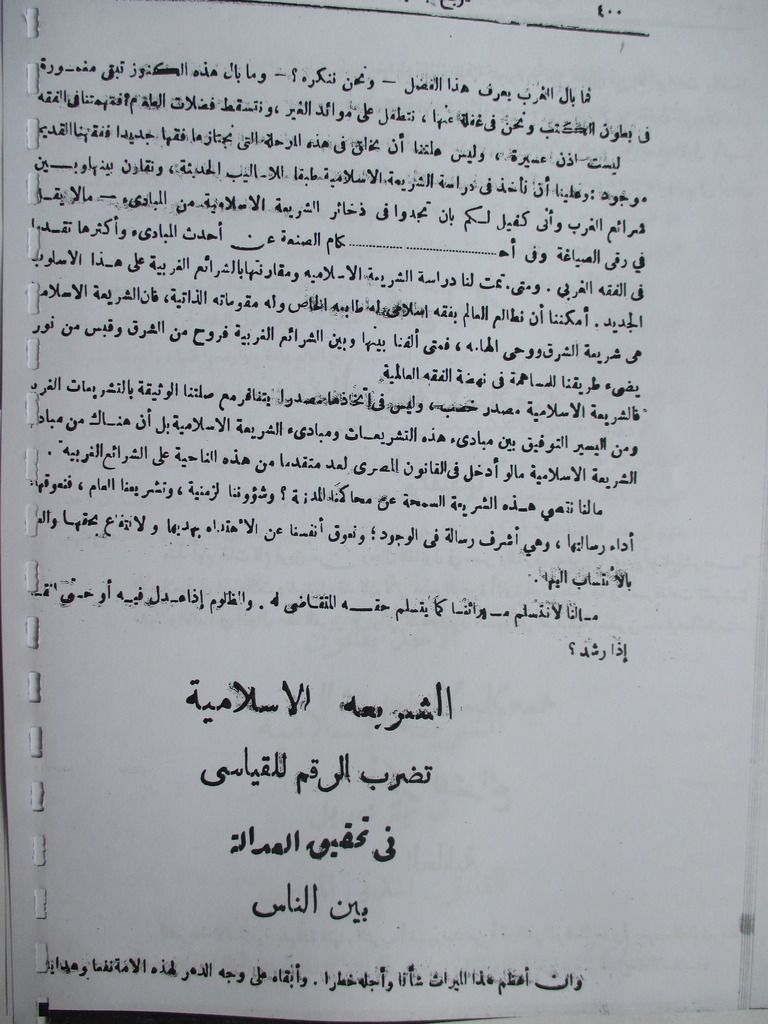 ٤٠٠
فما بال الغرب يعرف هذا الفضل – ونحن ننكره ؟ – وما بال هذه الكنوز تبقى مغمورة
فى بطون الكتب ونحن فى غفلة عنها ، نتطفل على موائد الغير ، ونتسقط فضلات الطعام
ليست اذن عسيرة ، وليس علينا أن نخلق فى هذه المرحلة التى نجتازها فقها جديدا ففقهنا القديم
موجود وعلينا أن نأخذ فى دراسة الشريعة الاسلامية طبقا للاساليب الحديثة ، ونقارن بينها وبين
شرائع الغرب وأنى كفيل لكم بان تجدوا فى ذخائر الشريعة الاسلامية من المبادىء – مالا يقل
في رقى الصياغة وفى أحـ.......... ..........كام الصنعة عن أحدث المبادىء وأكثرها تقدما
فى الفقه الغربي . ومتى تمت لنا دراسة الشريعة الاسلاميه ومقارنتها بالشرائع الغربية على هذا الاسلوب
الجديد . أمكننا أن نطالع العالم بفقه اسلامى له طابعه الخاص وله مقوماته الذاتية، فان الشريعة الاسلامـ
هى شريعة الشرق ووحى الهامه ، فمتى ألفنا بينها وبين الشرائع الغربية فروح من الشرق وقبس من نور
يضىء طريقنا للمساهمة فى نهضة الفقه العالمية
"فالشريعة الاسلامية مصدر خصب ، وليس فى اتخاذها مصدرا يتنافر مع صلتنا الوثيقة بالتشريعات الغربـ
ومن اليسير التوفيق بين مبادىء هذه التشريعات ومبادىء الشريعة الاسلامية بل أن هناك من مبادـ
الشريعة الاسلامية مالو أدخل فى القانون المصرى لعد متقدما من هذه الناحية على الشرائع الغربية" .
مالنا نقصي هذه الشريعة السمحة عن محاكمنا المدنية ؟ وشؤوننا لزمنية ، وتشريعنا العام ، فنعوقها
أداء رسالتها ، وهي أشرف رسالة فى الوجود ؛ ونعوق أنفسنا عن الاهتداء بهديها و لانتفاع بحقها والعـ
بالأنتساب اليها .
مالنا لانتسلم ميراثنا كما يتسلم حقه المتقاضى له . والمظلوم إذا عدل فيه أو حتى
إذا رشد ؟
الشريعه الاسلامية
تضرب الرقم القياسى
فى تحقيق العدالة
بين الناس
وان أعظم هذا الميراث شأنا وأجله خطرا . وأبقاه على وجه الدهر لهذه الامة نفعا وهدايـ